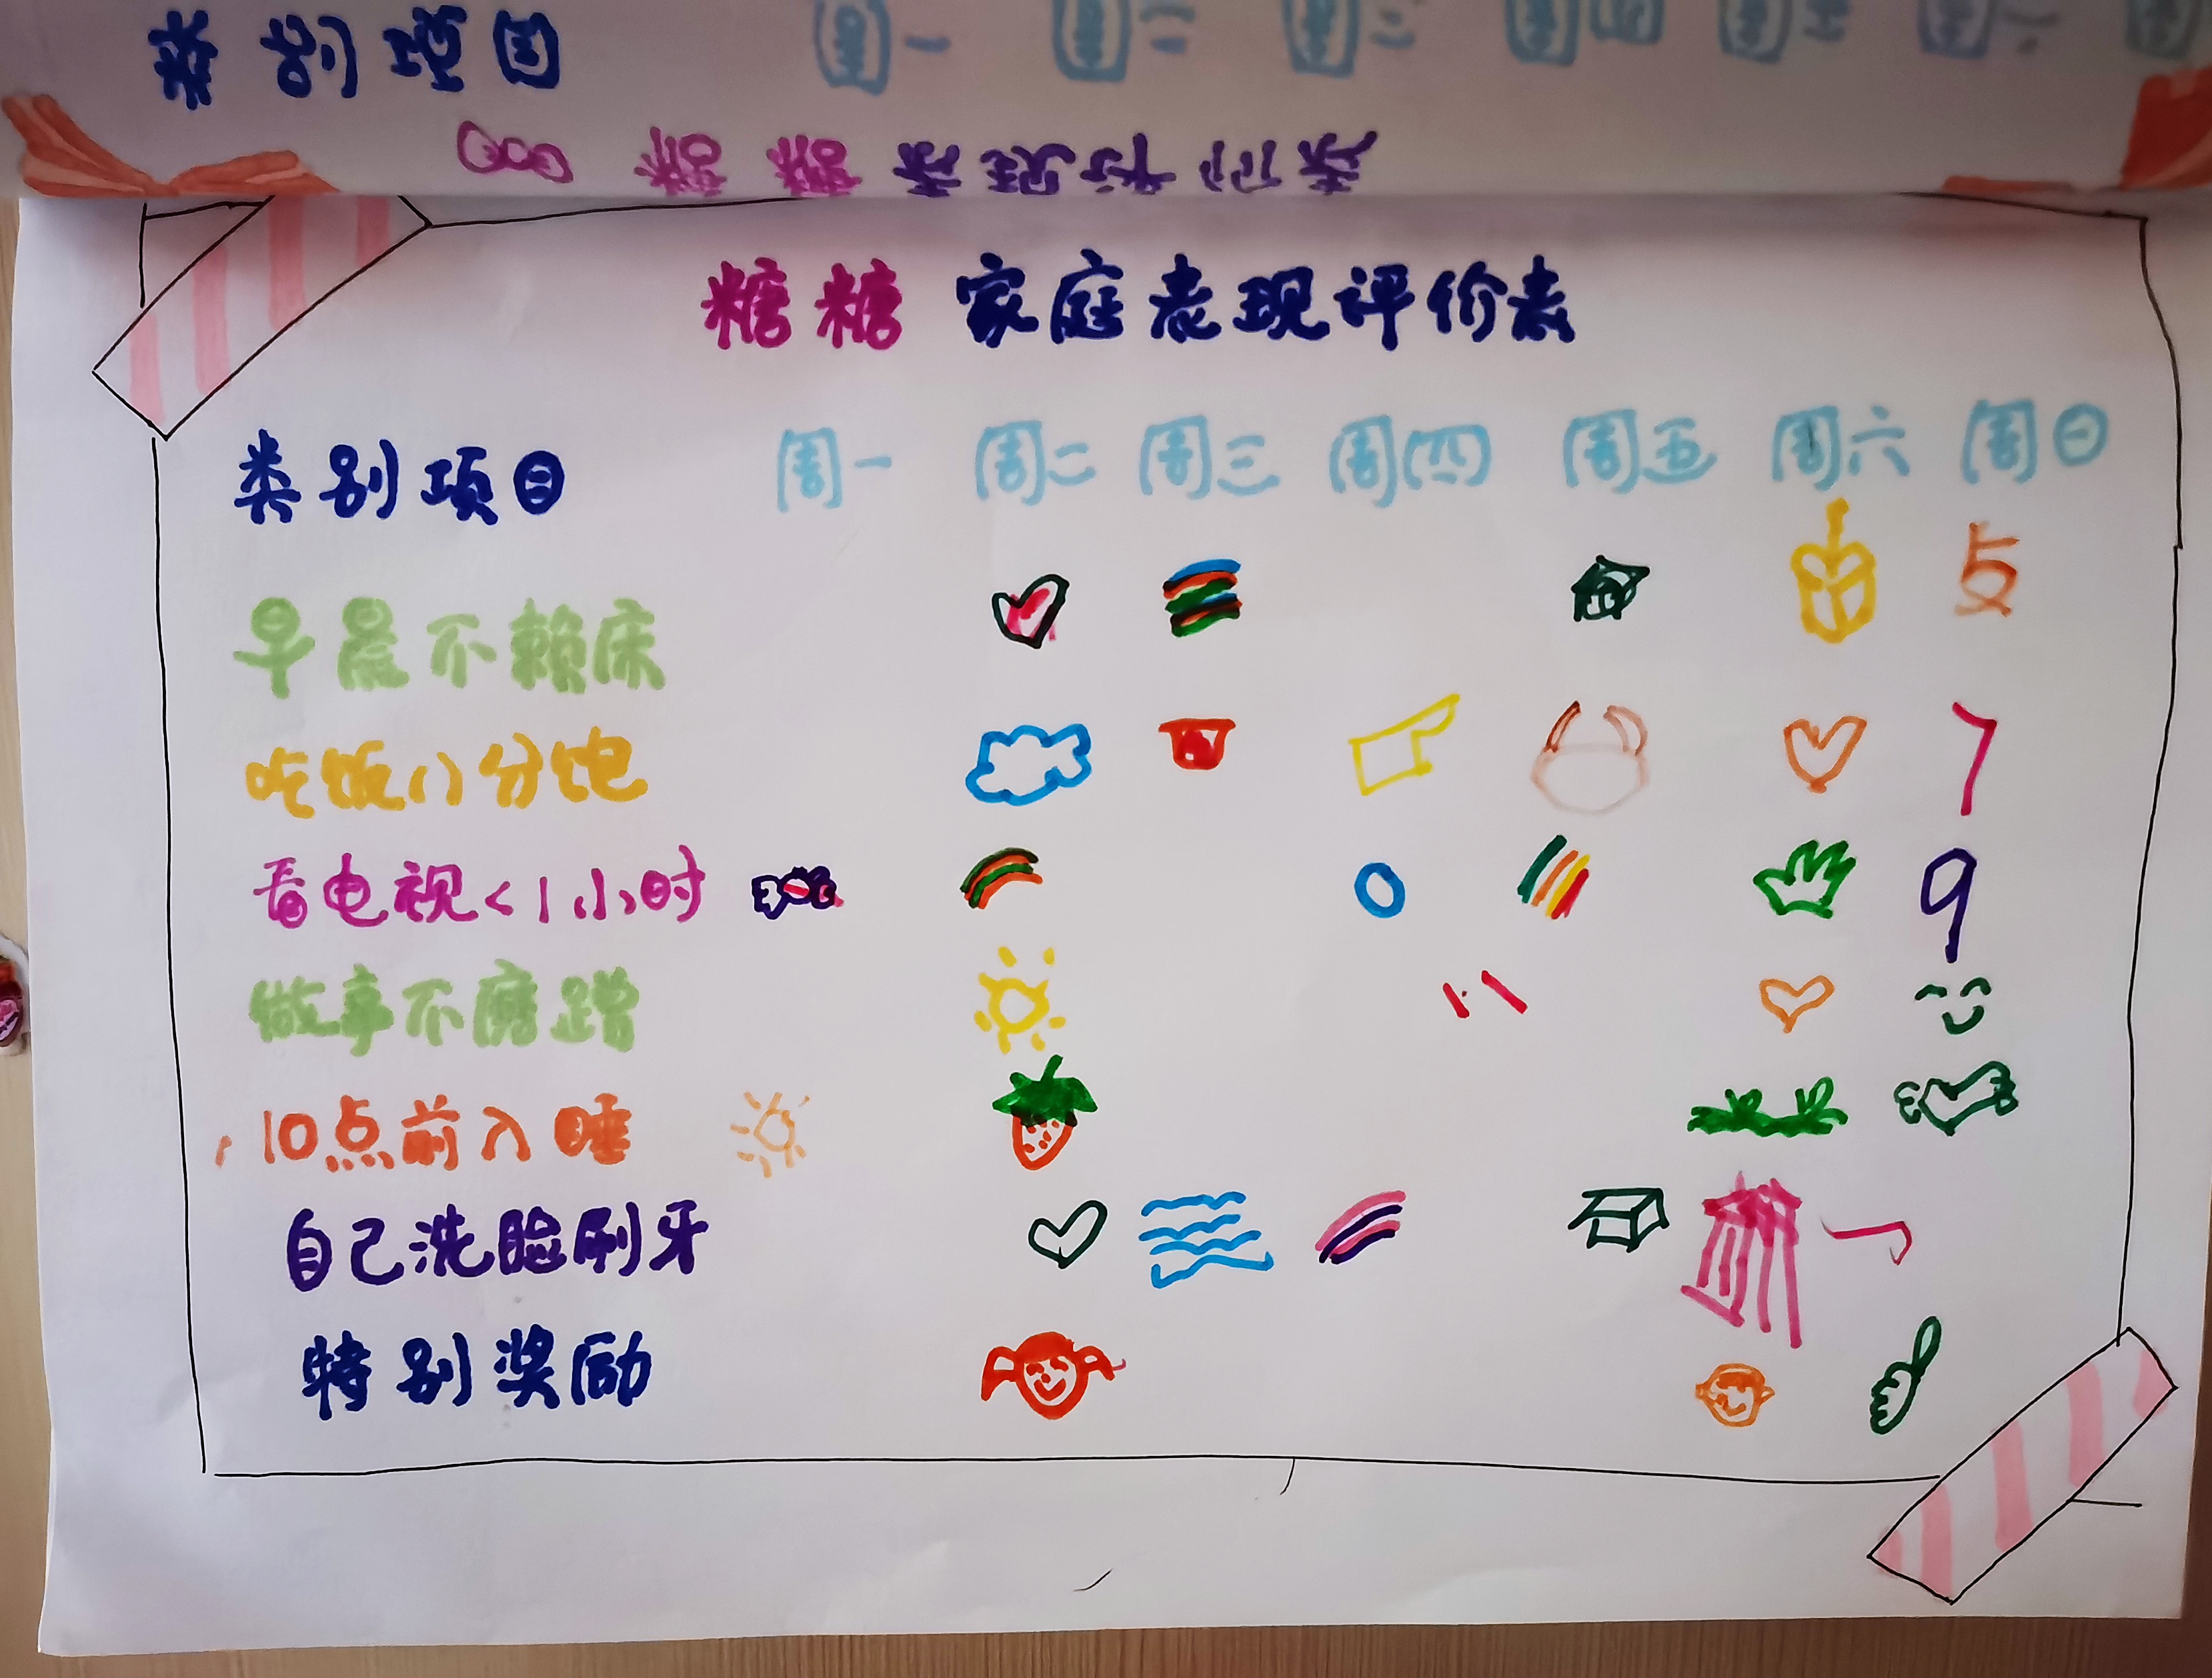 类别项目 周一 周二 周三 周四 周五 周六
糖糖表现评价表
糖糖 家庭表现评价表
类别项目 周一 周二 周三 周四 周五 周六 周日
早晨不赖床
吃饭八分饱 7
看电视<1小时 9
做事不磨蹭
10点前入睡
自己洗脸刷牙
特别奖励